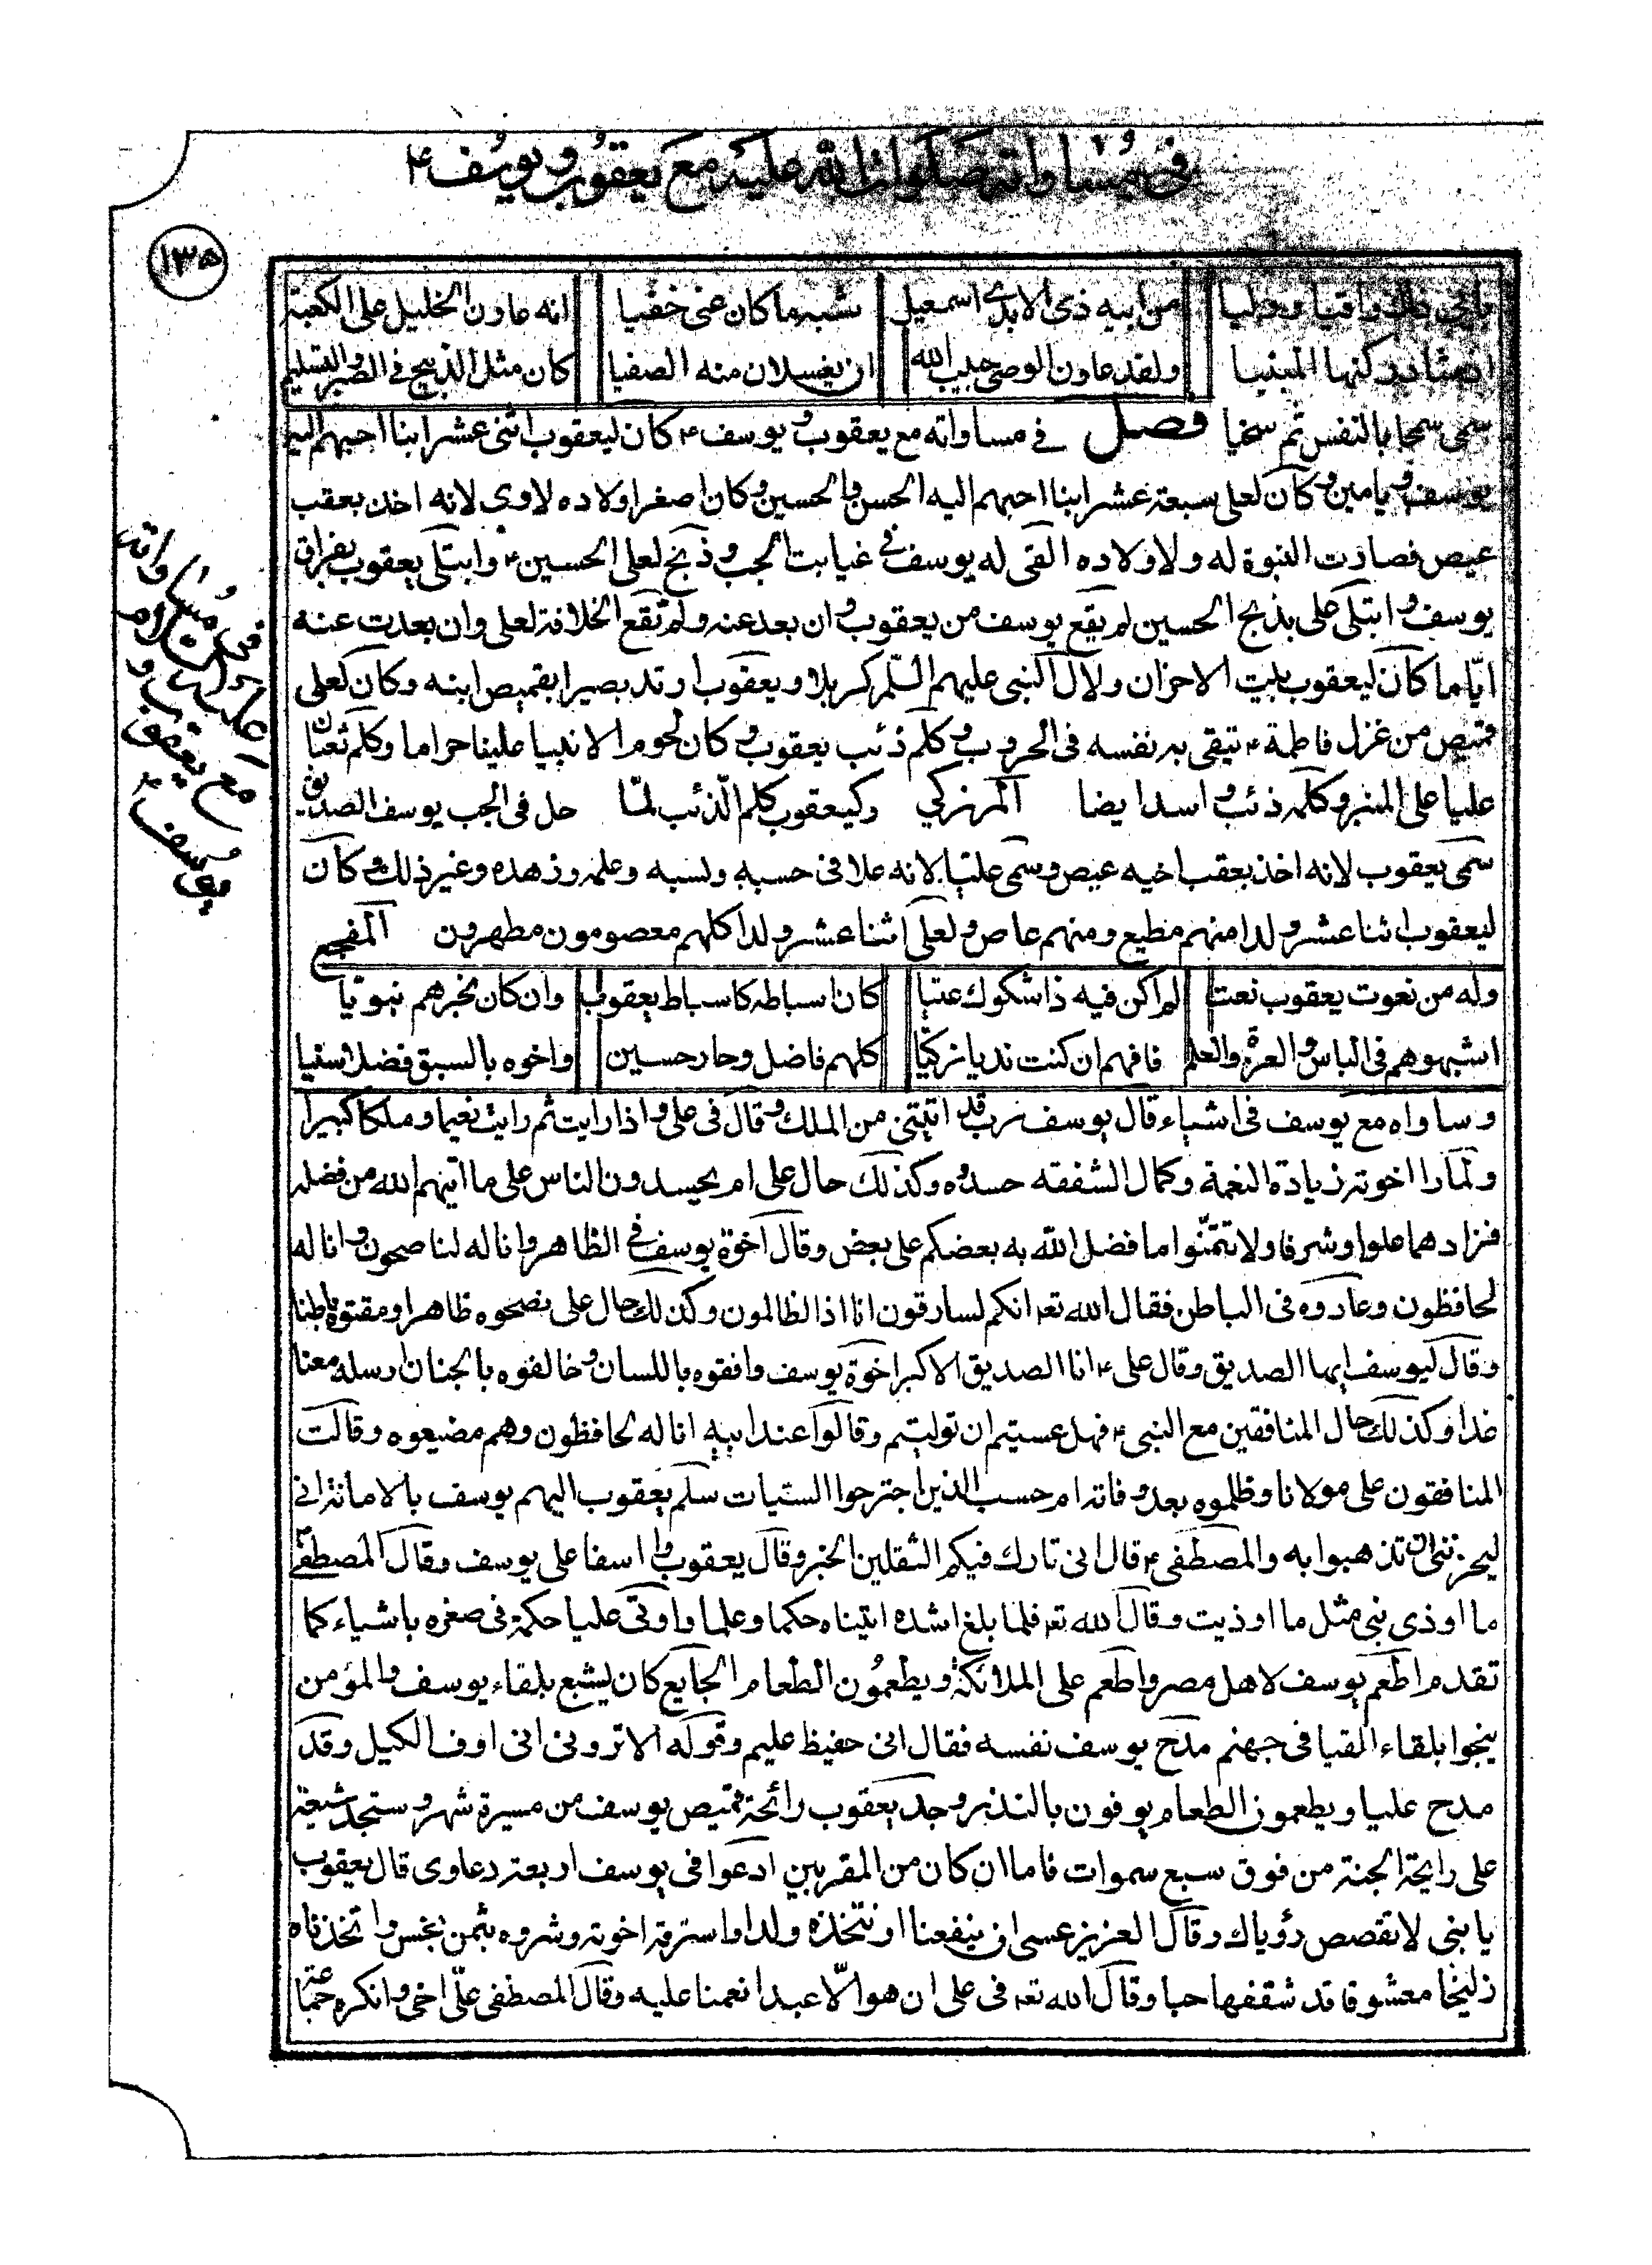 في مساواته صلوات الله عليه مع يعقوب ويوسف ۴
۱۳۵
من ابيه ذى الايدى اسمعيل شبه ما كان عنى خفيا انه عاون الخليل على الكعبة
اذ شاد ركنها المبنيا ولقد عاون الوصى حبيب الله ان يغسلان منه الصفيا كان مثل الذبيح في الصبر والتسليم
سمى سمحا بالنفس ثم سخيا فصل في مساواته مع يعقوب ويوسف ۴ كان ليعقوب اثنى عشر ابنا احبهم اليه
يوسف ويامين وكان لعلى سبعة عشر ابنا احبهم اليه الحسن والحسين وكان اصغر اولاده لاوى لانه اخذ بعقب
عيص فصارت النبوة له ولاولاده القى له يوسف في غيابت الجب وذبح لعلى الحسين ۴ وابتلى يعقوب بفراق
يوسف وابتلى على بذبح الحسين لم يقع يوسف من يعقوب وان بعد عنه ولم تقع الخلافة لعلى وان بعدت عنه
اياما كان ليعقوب بيت الاحزان ولال النبى عليهم السلم كربلا ويعقوب ارتد بصيرا بقميص ابنه وكان لعلى
قميص من غزل فاطمة ۴ يتقى به نفسه فى الحروب وكلم ذئب يعقوب وكان لحوم الانبيا علينا حراما وكلم ثعبان
عليا على المنبر وكلمه ذئب واسد ايضا المرزكي وكيعقوب كلم الذئب لما حل فى الجب يوسف الصديق
سمى يعقوب لانه اخذ بعقب اخيه عيص وسمى عليا لانه علا فى حسبه ونسبه وعلمه وزهده وغير ذلك وكان
ليعقوب اثنا عشر ولدا منهم مطيع ومنهم عاص ولعلى اثنا عشر ولدا كلهم معصومون مطهرون المفجع
وله من نعوت يعقوب نعت لم اكن فيه ذا شكوك عتيا كان اسباطه كاسباط يعقوب وان كان نجرهم نبويا
اشبهوهم فى الباس والعزة والعلم فافهم ان كنت نديا زكيا كلهم فاضل وحاز حسين واخوه بالسبق فضلا سنيا
وساواه مع يوسف فى اشياء قال يوسف رب قد اتيتنى من الملك وقال فى على واذا رايت ثم رايت نعيما وملكا كبيرا
ولما را اخوته زيادة النعمة وكمال الشفقه حسدوه وكذلك حال على ام يحسدون الناس على ما اتيهم الله من فضله
فزادهما علوا وشرفا ولا تتمنوا ما فضل الله به بعضكم على بعض وقال اخوة يوسف في الظاهر وانا له لناصحون وانا له
لحافظون وعادوه فى الباطن فقال الله تعه انكم لسارقون انا اذا لظالمون وكذلك حال على نصحوه ظاهرا ومقتوه باطنا
وقال ليوسف ايها الصديق وقال على ۴ انا الصديق الاكبر اخوة يوسف وافقوه باللسان وخالفوه بالجنان ارسله معنا
غدا وكذلك حال المنافقين مع النبى ۴ فهل عسيتم ان توليتم وقالوا عند ابيه انا له لحافظون وهم مضيعوه وقالت
المنافقون على مولانا وظلموه بعد وفاته ام حسب الذين اجترحوا السيات سلم يعقوب اليهم يوسف بالامانة انى
ليحزننى ان تذهبوا به والمصطفى ۴ قال انى تارك فيكم الثقلين الخبر وقال يعقوب وا اسفا على يوسف وقال المصطفى
ما اوذى نبى مثل ما اوذيت وقال الله تعه فلما بلغ اشده اتيناه حكما وعلما واوتى عليا حكمة فى صغره باشياء كما
تقدم اطعم يوسف لاهل مصر واطعم على الملائكة ويطعمون الطعام الجايع كان يشبع بلقاء يوسف والمؤمن
ينجوا بلقاء القيا فى جهنم مدح يوسف نفسه فقال انى حفيظ عليم وقوله الا ترونى انى اوف الكيل وقد
مدح عليا ويطعمون الطعام يوفون بالنذر وجد يعقوب رائحة قميص يوسف من مسيرة شهر وستجد شيعة
على رايحة الجنة من فوق سبع سموات فاما ان كان من المقربين ادعوا فى يوسف اربعة دعاوى قال يعقوب
يا بنى لا تقصص رؤياك وقال العزيز عسى ان ينفعنا او نتخذه ولدا واسترقه اخوته وشروه بثمن بخس واتخذناه
زليخا معشوقا قد شغفها حبا وقال الله تعه فى على ان هو الا عبد انعمنا عليه وقال المصطفى على اخى وانكره جماعة
في مساواته
عليه السلام
مع يعقوب و
يوسف ۴